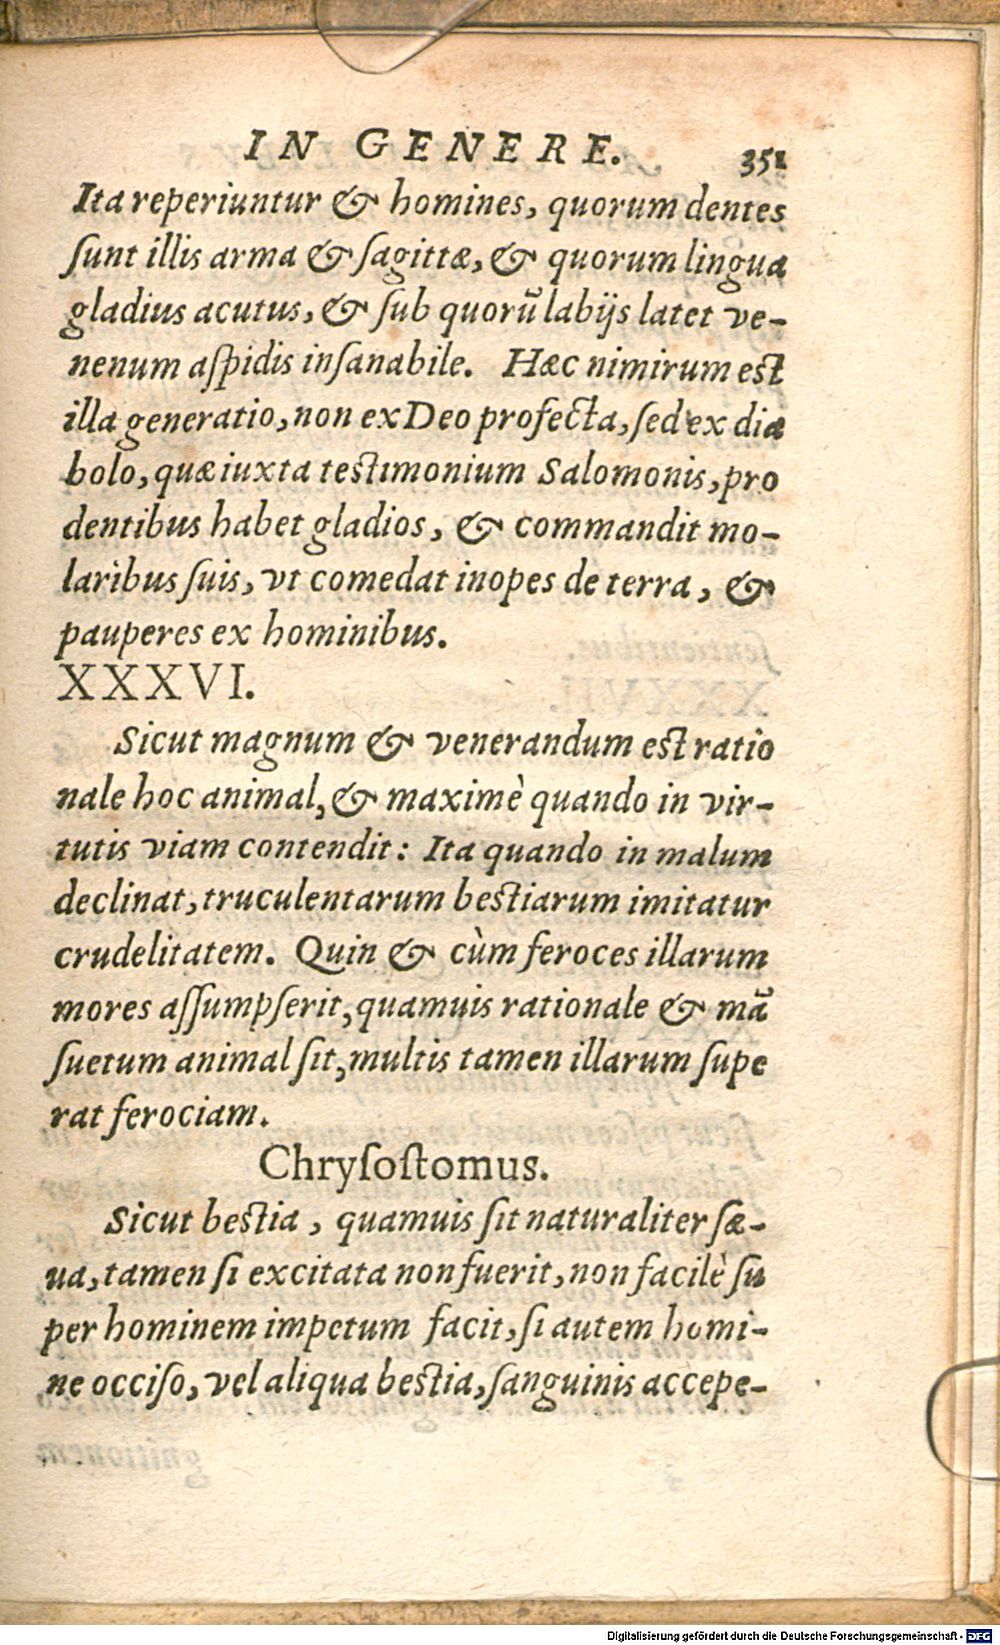 IN GENERE. 351
Ita reperiuntur & homines, quorum dentes
ſunt illis arma & ſagittæ, & quorum lingua
gladius acutus, & ſub quorũ labijs latet ve-
nenum aſpidis inſanabile. Hæc nimirum est
illa generatio, non ex Deo profecta, ſed ex dia
bolo, quæ iuxta testimonium Salomonis, pro
dentibus habet gladios, & commandit mo-
laribus ſuis, vt comedat inopes de terra, &
pauperes ex hominibus.
XXXVI.
Sicut magnum & venerandum est ratio
nale hoc animal, & maximè quando in vir-
tutis viam contendit: Ita quando in malum
declinat, truculentarum bestiarum imitatur
crudelitatem. Quin & cùm feroces illarum
mores aſſumpſerit, quamuis rationale & mã
ſuetum animal ſit, multis tamen illarum ſupe
rat ferociam.
Chryſoſtomus.
Sicut bestia, quamuis ſit naturaliter ſæ-
ua, tamen ſi excitata non fuerit, non facilè ſu
per hominem impetum facit, ſi autem homi-
ne occiſo, vel aliqua bestia, ſanguinis accepe-
Digitalisierung gefördert durch die Deutsche Forschungsgemeinschaft - DFG